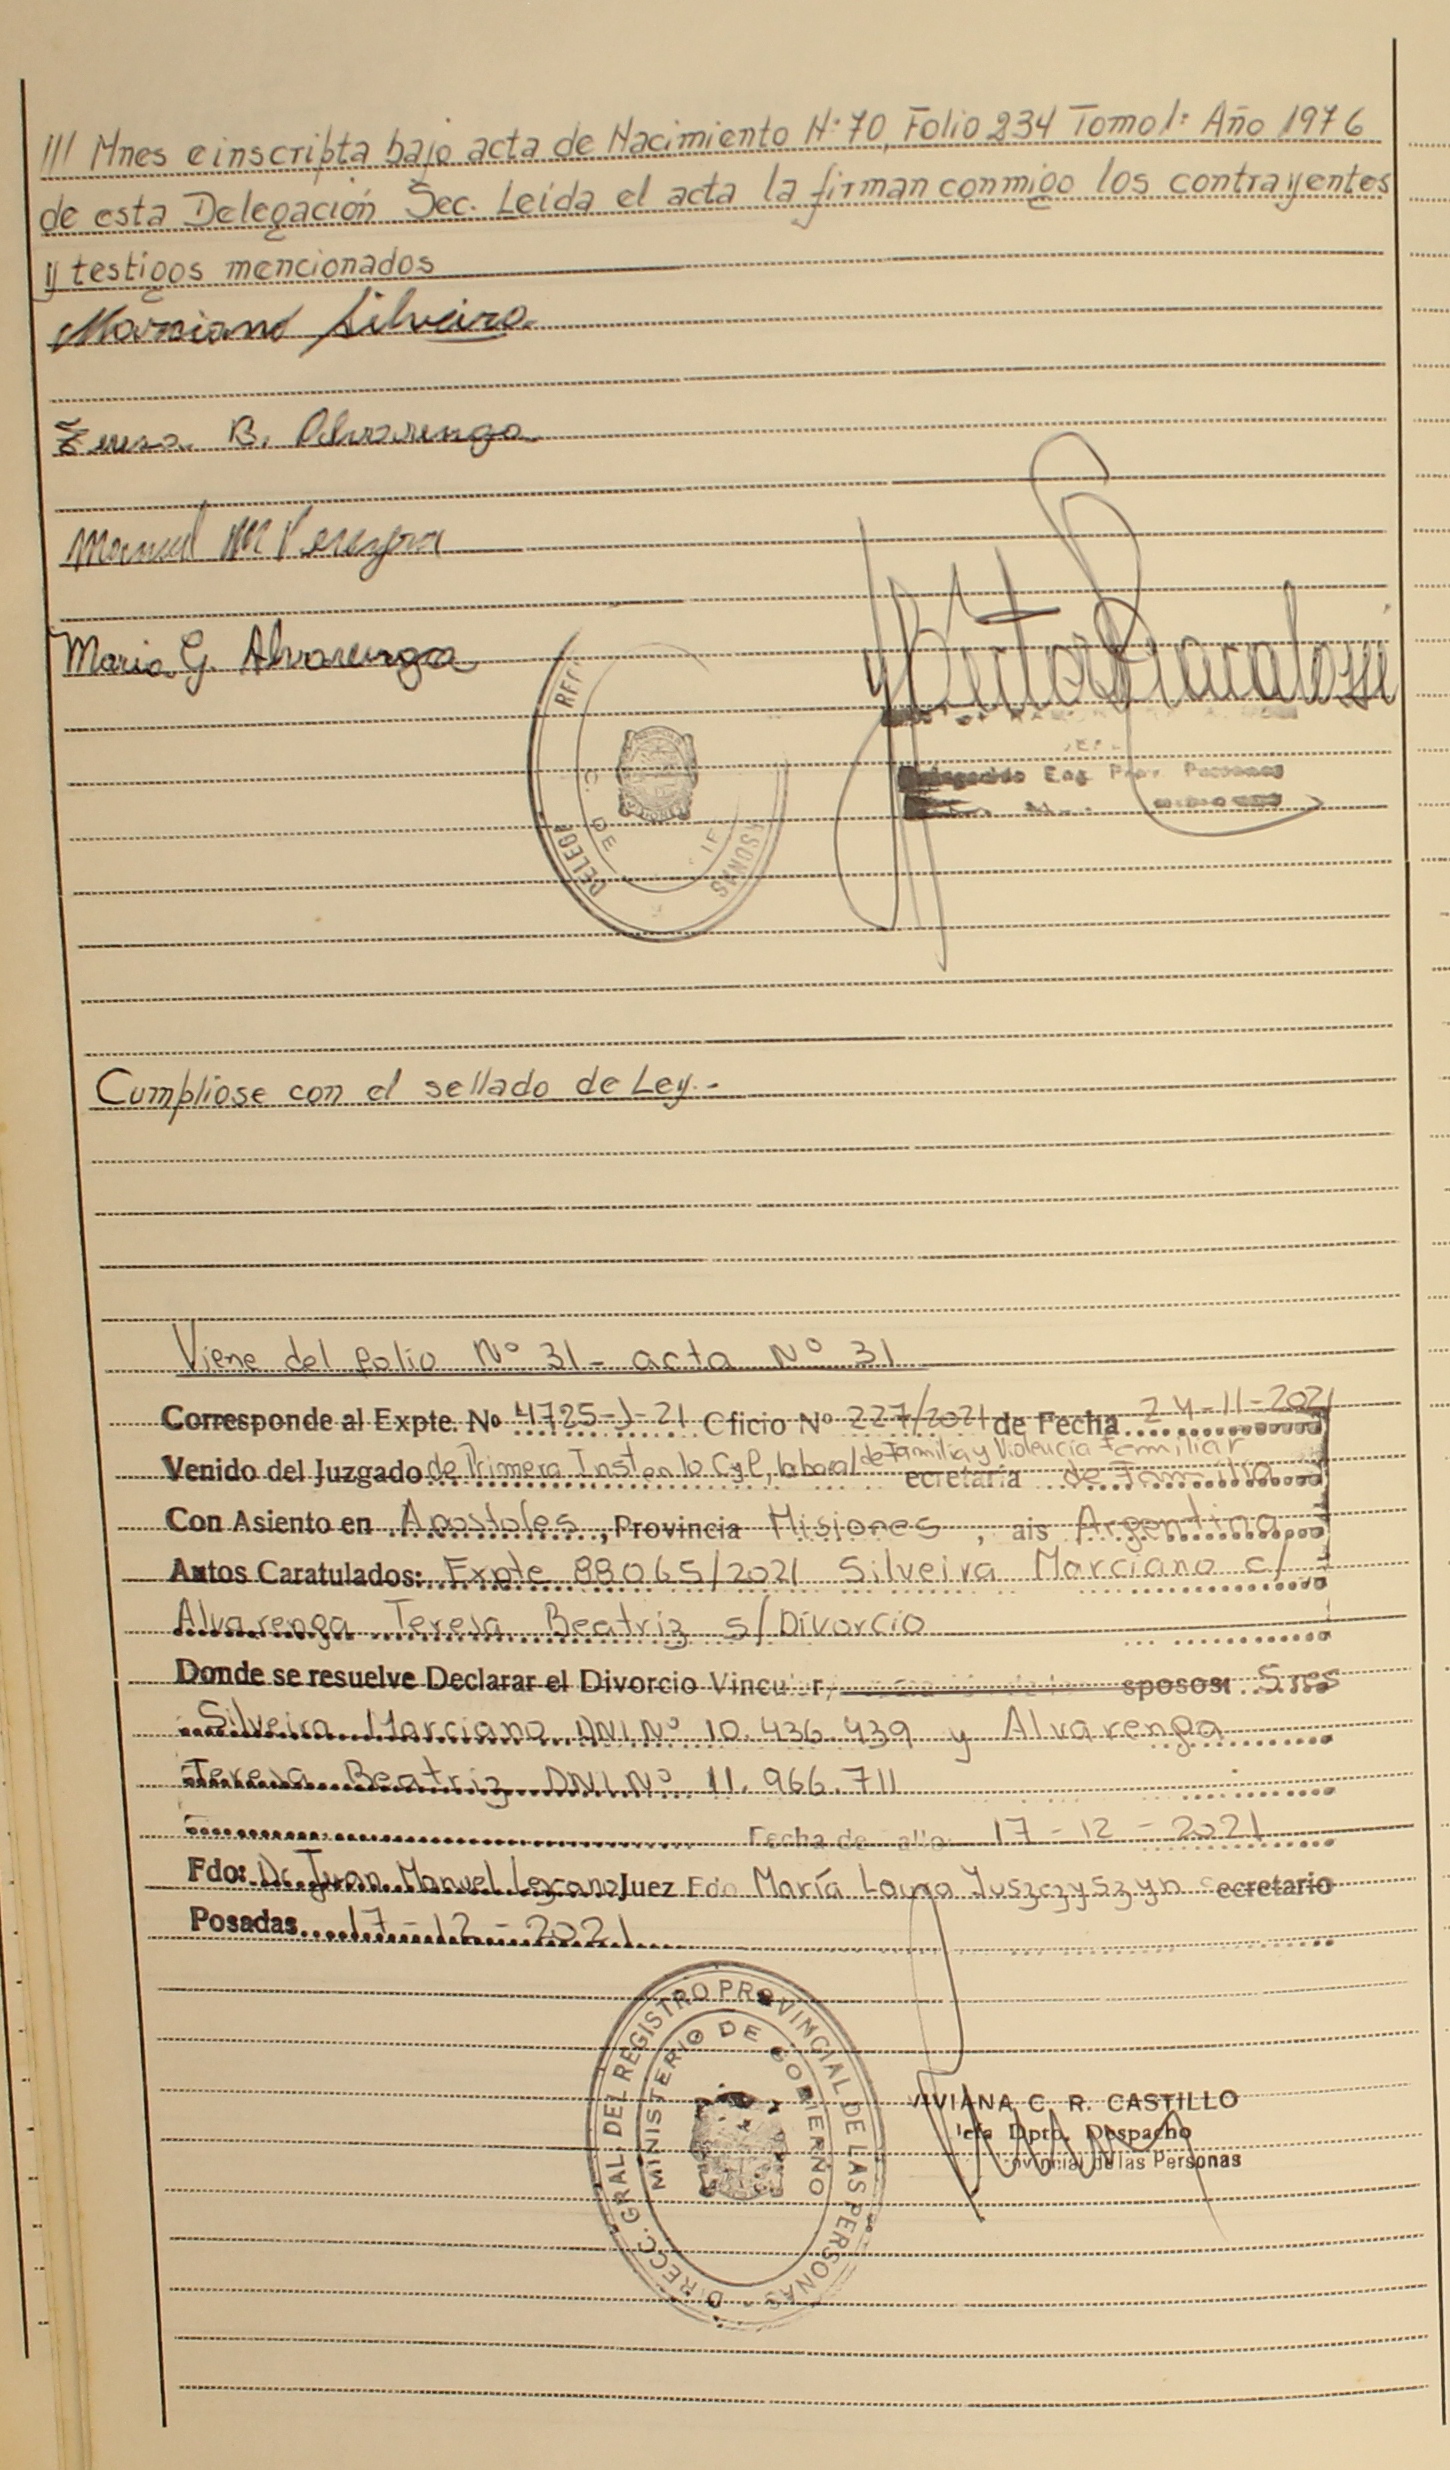 /// Mnes e inscripta bajo acta de Nacimiento N: 70, Folio 234 Tomo 1: Año 1976
de esta Delegación Sec. Leída el acta la firman conmigo los contrayentes
y testigos mencionados
Marciano Silveira
Teresa B. Alvarenga
Manuel M Pereyra
Maria G. Alvarenga
Cumpliose con el sellado de Ley.-
Viene del folio Nº 31 - acta Nº 31
Corresponde al Expte. Nº 4725-J-21 Oficio Nº 227/2021 de Fecha 24-11-2021
Venido del Juzgado de Primera Inst en lo Cyl, laboral de Familia y Violencia Familiar ecretaria de Familia
Con Asiento en Apostoles, Provincia Misiones, ais Argentina
Autos Caratulados: Expte 88065/2021 Silveira Marciano c/
Alvarenga Teresa Beatriz s/ Divorcio
Donde se resuelve Declarar el Divorcio Vincu r, sposos: Sres
Silveira Marciano DNI Nº 10.436.439 y Alvarenga
Teresa Beatriz DNI Nº 11.966.711
Fecha de allo 17-12-2021
Fdo: Dr. Juan Manuel Lezcano Juez Fdo María Laura Juszczyszyn ecretario
Posadas 17-12-2021
DIRECC. GRAL. DEL REGISTRO PROVINCIAL DE LAS PERSONAS
MINISTERIO DE GOBIERNO
VIVIANA C. R. CASTILLO
Jefa Dpto. Despacho
ovincial de las Personas